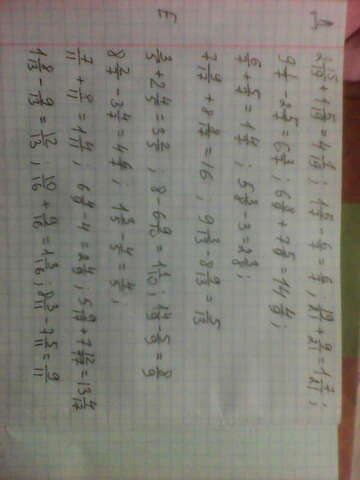 Д
2 15/19 + 1 5/19 = 4 1/19 ; 1 5/7 - 6/7 = 6/7 ; 19/21 + 9/21 = 1 7/21 ;
9 1/7 - 2 5/7 = 6 3/7 ; 6 8/9 + 7 5/9 = 14 4/9 ;
6/7 + 5/7 = 1 4/7 ; 5 3/8 - 3 = 2 3/8 ;
7 9/17 + 8 8/17 = 16 , 9 1/13 - 8 9/13 = 5/13
Е
3/5 + 2 4/5 = 3 2/5 ; 8 - 6 9/10 = 1 1/10 ; 1 4/9 - 5/9 = 8/9
8 3/7 - 3 4/7 = 4 6/7 ; 1 3/5 - 4/5 = 4/5 ;
7/11 + 8/11 = 1 4/11 ; 6 4/9 - 4 = 2 4/9 ; 5 9/17 + 7 12/17 = 13 4/17
1 8/13 - 9/13 = 12/13 ; 10/16 + 9/16 = 1 3/16 ; 8 3/11 - 7 5/11 = 9/11